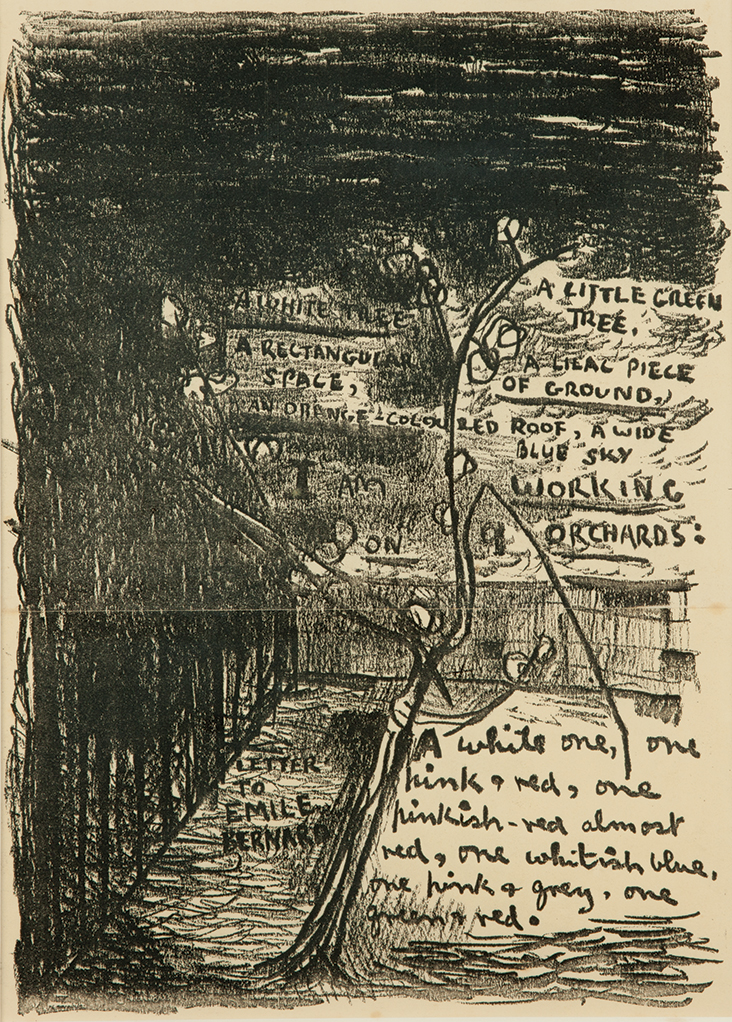 A WHITE TREE
A LITTLE GREEN
TREE,
A RECTANGULAR
SPACE,
A LILAC PIECE
OF GROUND,
AN ORANGE-COLOURED ROOF, A WIDE
BLUE SKY
I AM WORKING
ON 9 ORCHARDS:
A white one, one
pink & red, one
pinkish-red almost
red, one whitish blue,
one pink & grey, one
green & red.
LETTER
TO
EMILE
BERNARD